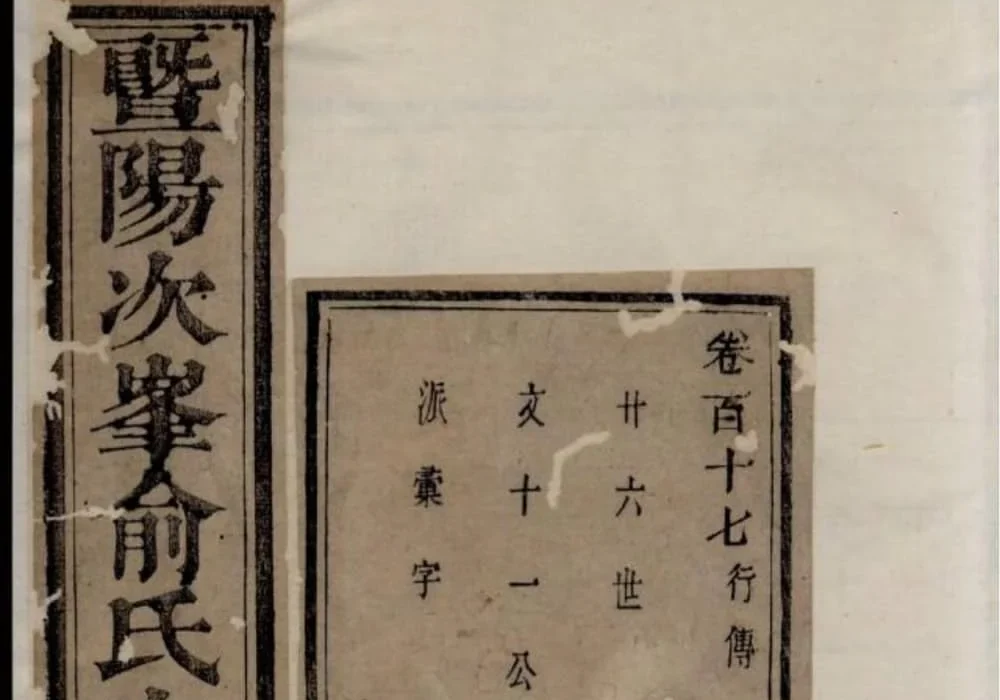 暨陽次峯俞氏
卷百十七行傳
廿六世
文十一公
派彙字